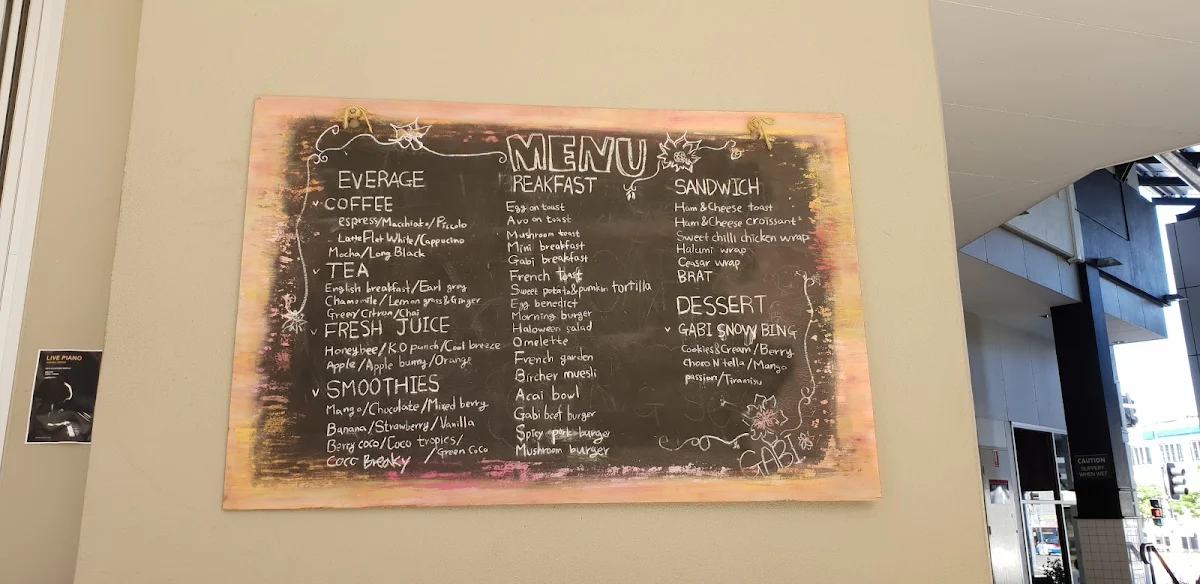 MENU
EVERAGE
COFFEE
espress/Macchiato/Piccolo
Latte Flat White/Cappucino
Mocha/Long Black
TEA
English breakfast/Earl grey
Chamomile/Lemon grass&Ginger
Green/Citron/Chai
FRESH JUICE
Honeybee/K.O punch/Cool breeze
Apple/Apple bunny/Orange
SMOOTHIES
Mango/Chocolate/Mixed berry
Banana/Strawberry/Vanilla
Berry coco/Coco tropics/
Coco Breaky /Green Coco
REAKFAST
Egg on toast
Avo on toast
Mushroom toast
Mini breakfast
Gabi breakfast
French toast
Sweet potato&pumkin tortilla
Egg benedict
Morning burger
Haloween salad
Omelette
French garden
Bircher muesli
Acai bowl
Gabi beef burger
Spicy pork burger
Mushroom burger
SANDWICH
Ham&Cheese toast
Ham&Cheese croissant
Sweet chilli chicken wrap
Halumi wrap
Ceasar wrap
BRAT
DESSERT
GABI SNOWY BING
Cookies&Cream/Berry
Choco N tella/Mango
passion/Tiramisu
GABI
LIVE PIANO
CAUTION
SLIPPERY
WHEN WET